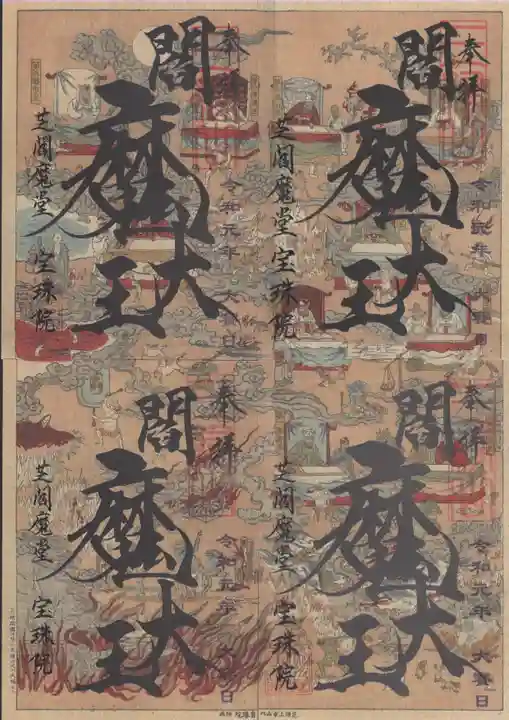 奉拝
閻
魔
大王
令和元年 大祭日
芝閻魔堂 宝珠院
奉拝
閻
魔
大王
令和元年 大祭日
芝閻魔堂 宝珠院
奉拝
閻
魔
大王
令和元年 大祭日
芝閻魔堂 宝珠院
奉拝
閻
魔
大王
令和元年 大祭日
芝閻魔堂 宝珠院